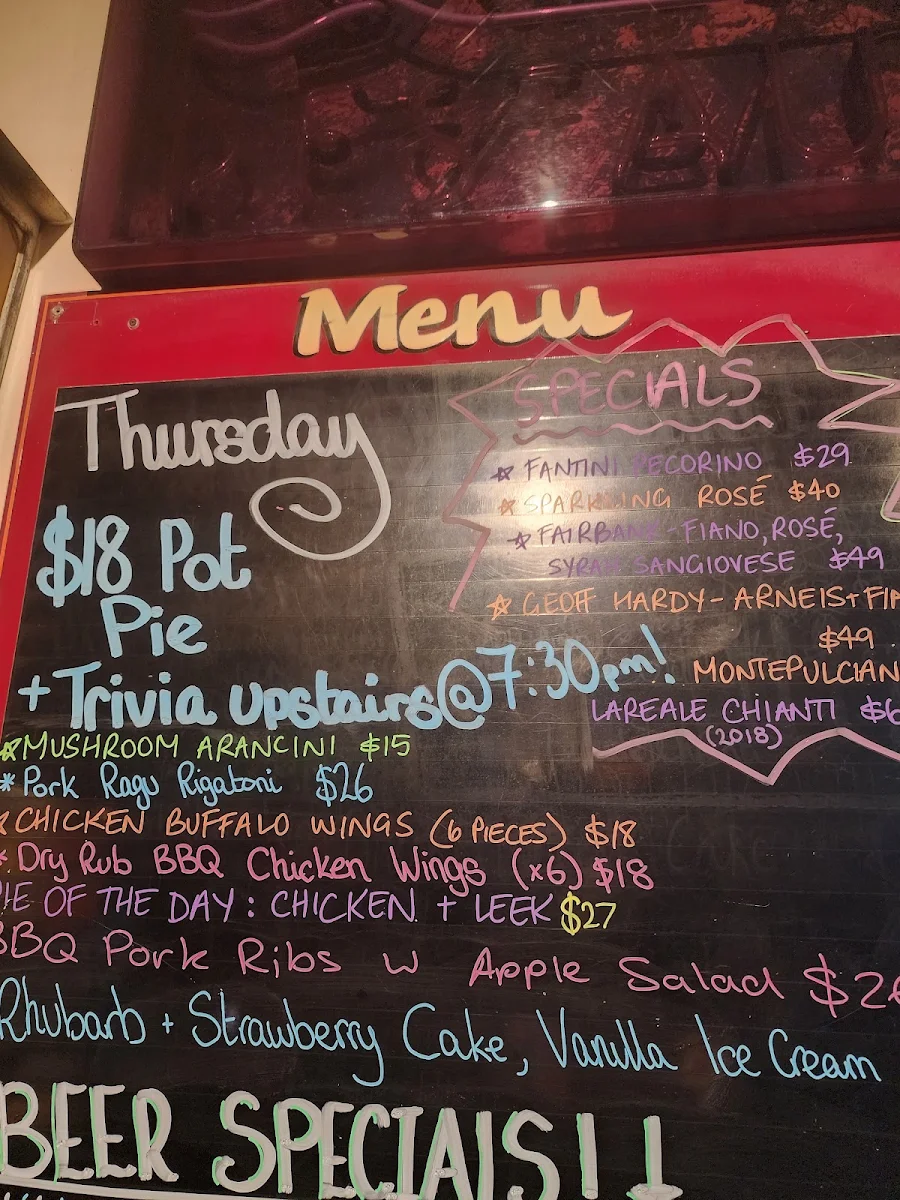 Menu
Thursday
$18 Pot
Pie
+ Trivia upstairs @ 7:30pm!
SPECIALS
FANTINI PECORINO $29
SPARKLING ROSÉ $40
FAIRBANK - FIANO, ROSÉ,
SYRAH SANGIOVESE $49
GEOFF HARDY - ARNEIS + FIA
$49
MONTEPULCIAN
LAREALE CHIANTI $6
(2018)
* MUSHROOM ARANCINI $15
* Pork Ragu Rigatoni $26
CHICKEN BUFFALO WINGS (6 PIECES) $18
* Dry Rub BBQ Chicken Wings (x6) $18
PIE OF THE DAY: CHICKEN + LEEK $27
BBQ Pork Ribs w Apple Salad $2
Rhubarb + Strawberry Cake, Vanilla Ice Cream
BEER SPECIALS!!